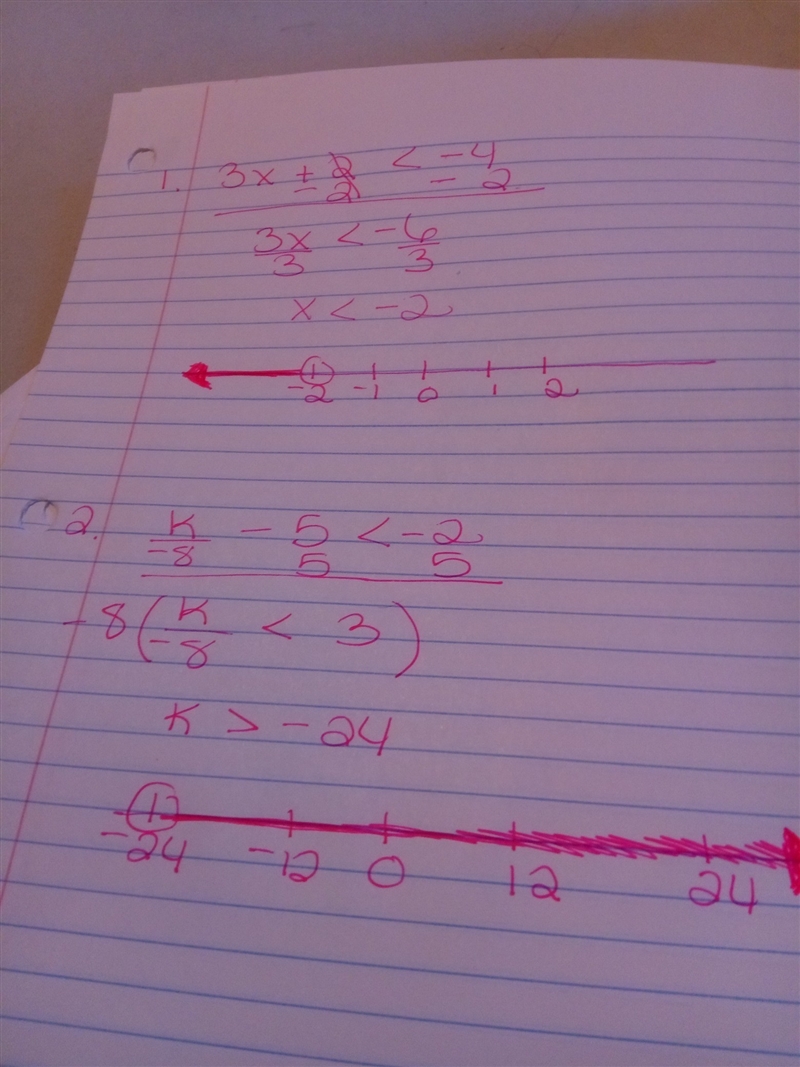 1. 3x + 2 < -4
- 2 - 2
3x < -6
3 3
x < -2
-2 -1 0 1 2
2. K - 5 < -2
-8 5 5
-8 ( K < 3 )
-8
K > -24
-24 -12 0 12 24